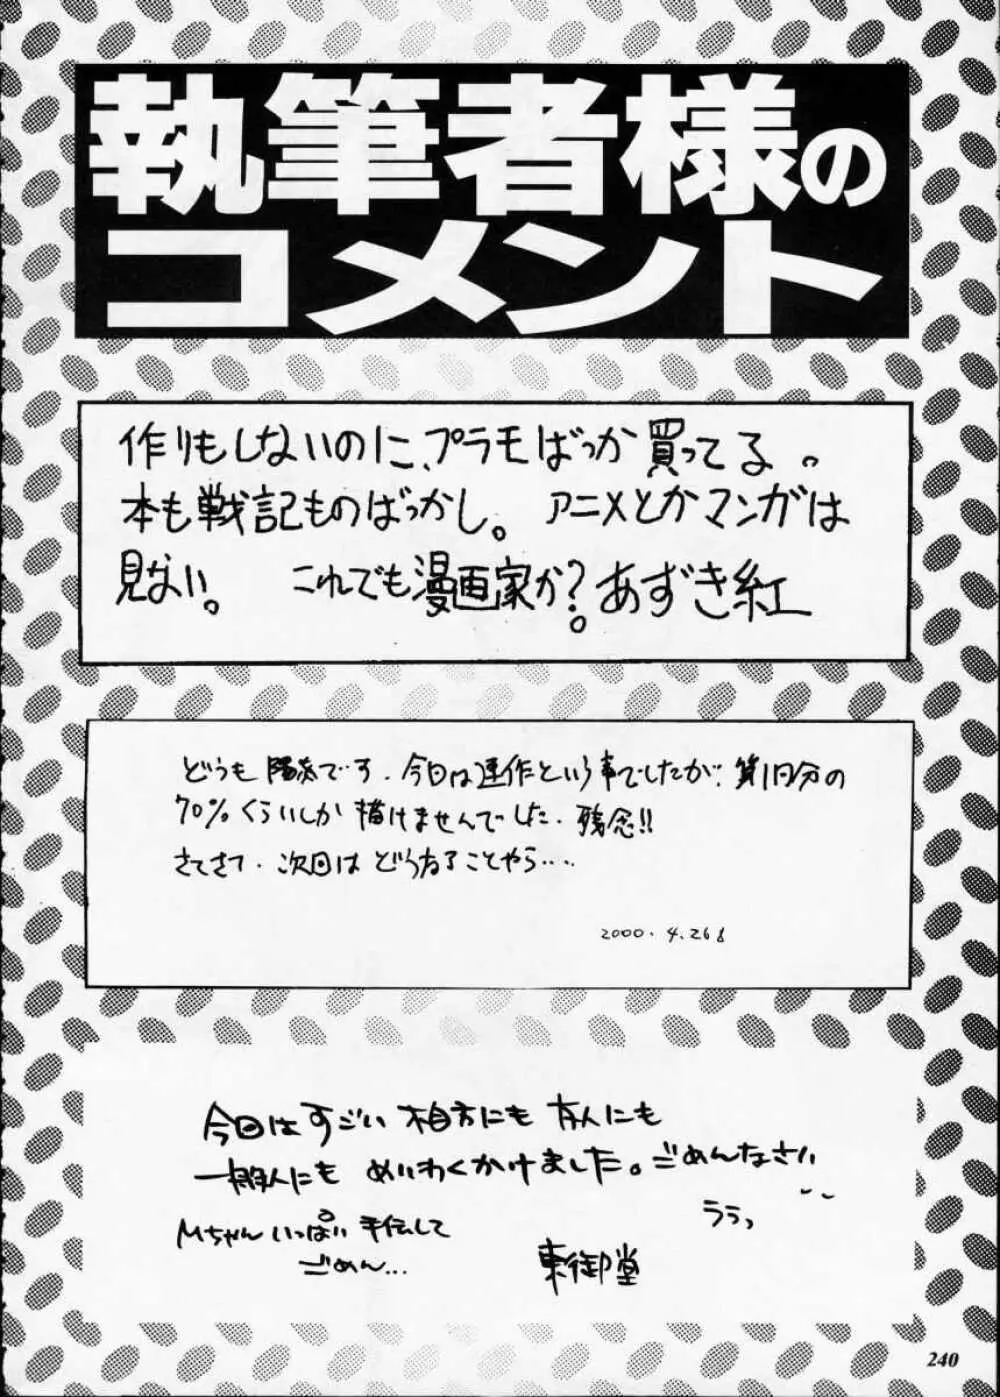 執筆者様の
コメント
作りもしないのに、プラモばっか買ってる。
本も戦記ものばっかし。 アニメとかマンガは
見ない。 これでも漫画家か?。あずき紅
どうも 陽炎です. 今回は連作という事でしたが、第1回分の
70%くらいしか描けませんでした. 残念!!
さてさて. 次回はどうなることやら・・・・
2000. 4. 26
今回はすごい 相方にも 友人にも
一般人にも めいわくかけました。ごめんなさい
ううっ
Mちゃん いっぱい 手伝して
ごめん...
東御堂
240